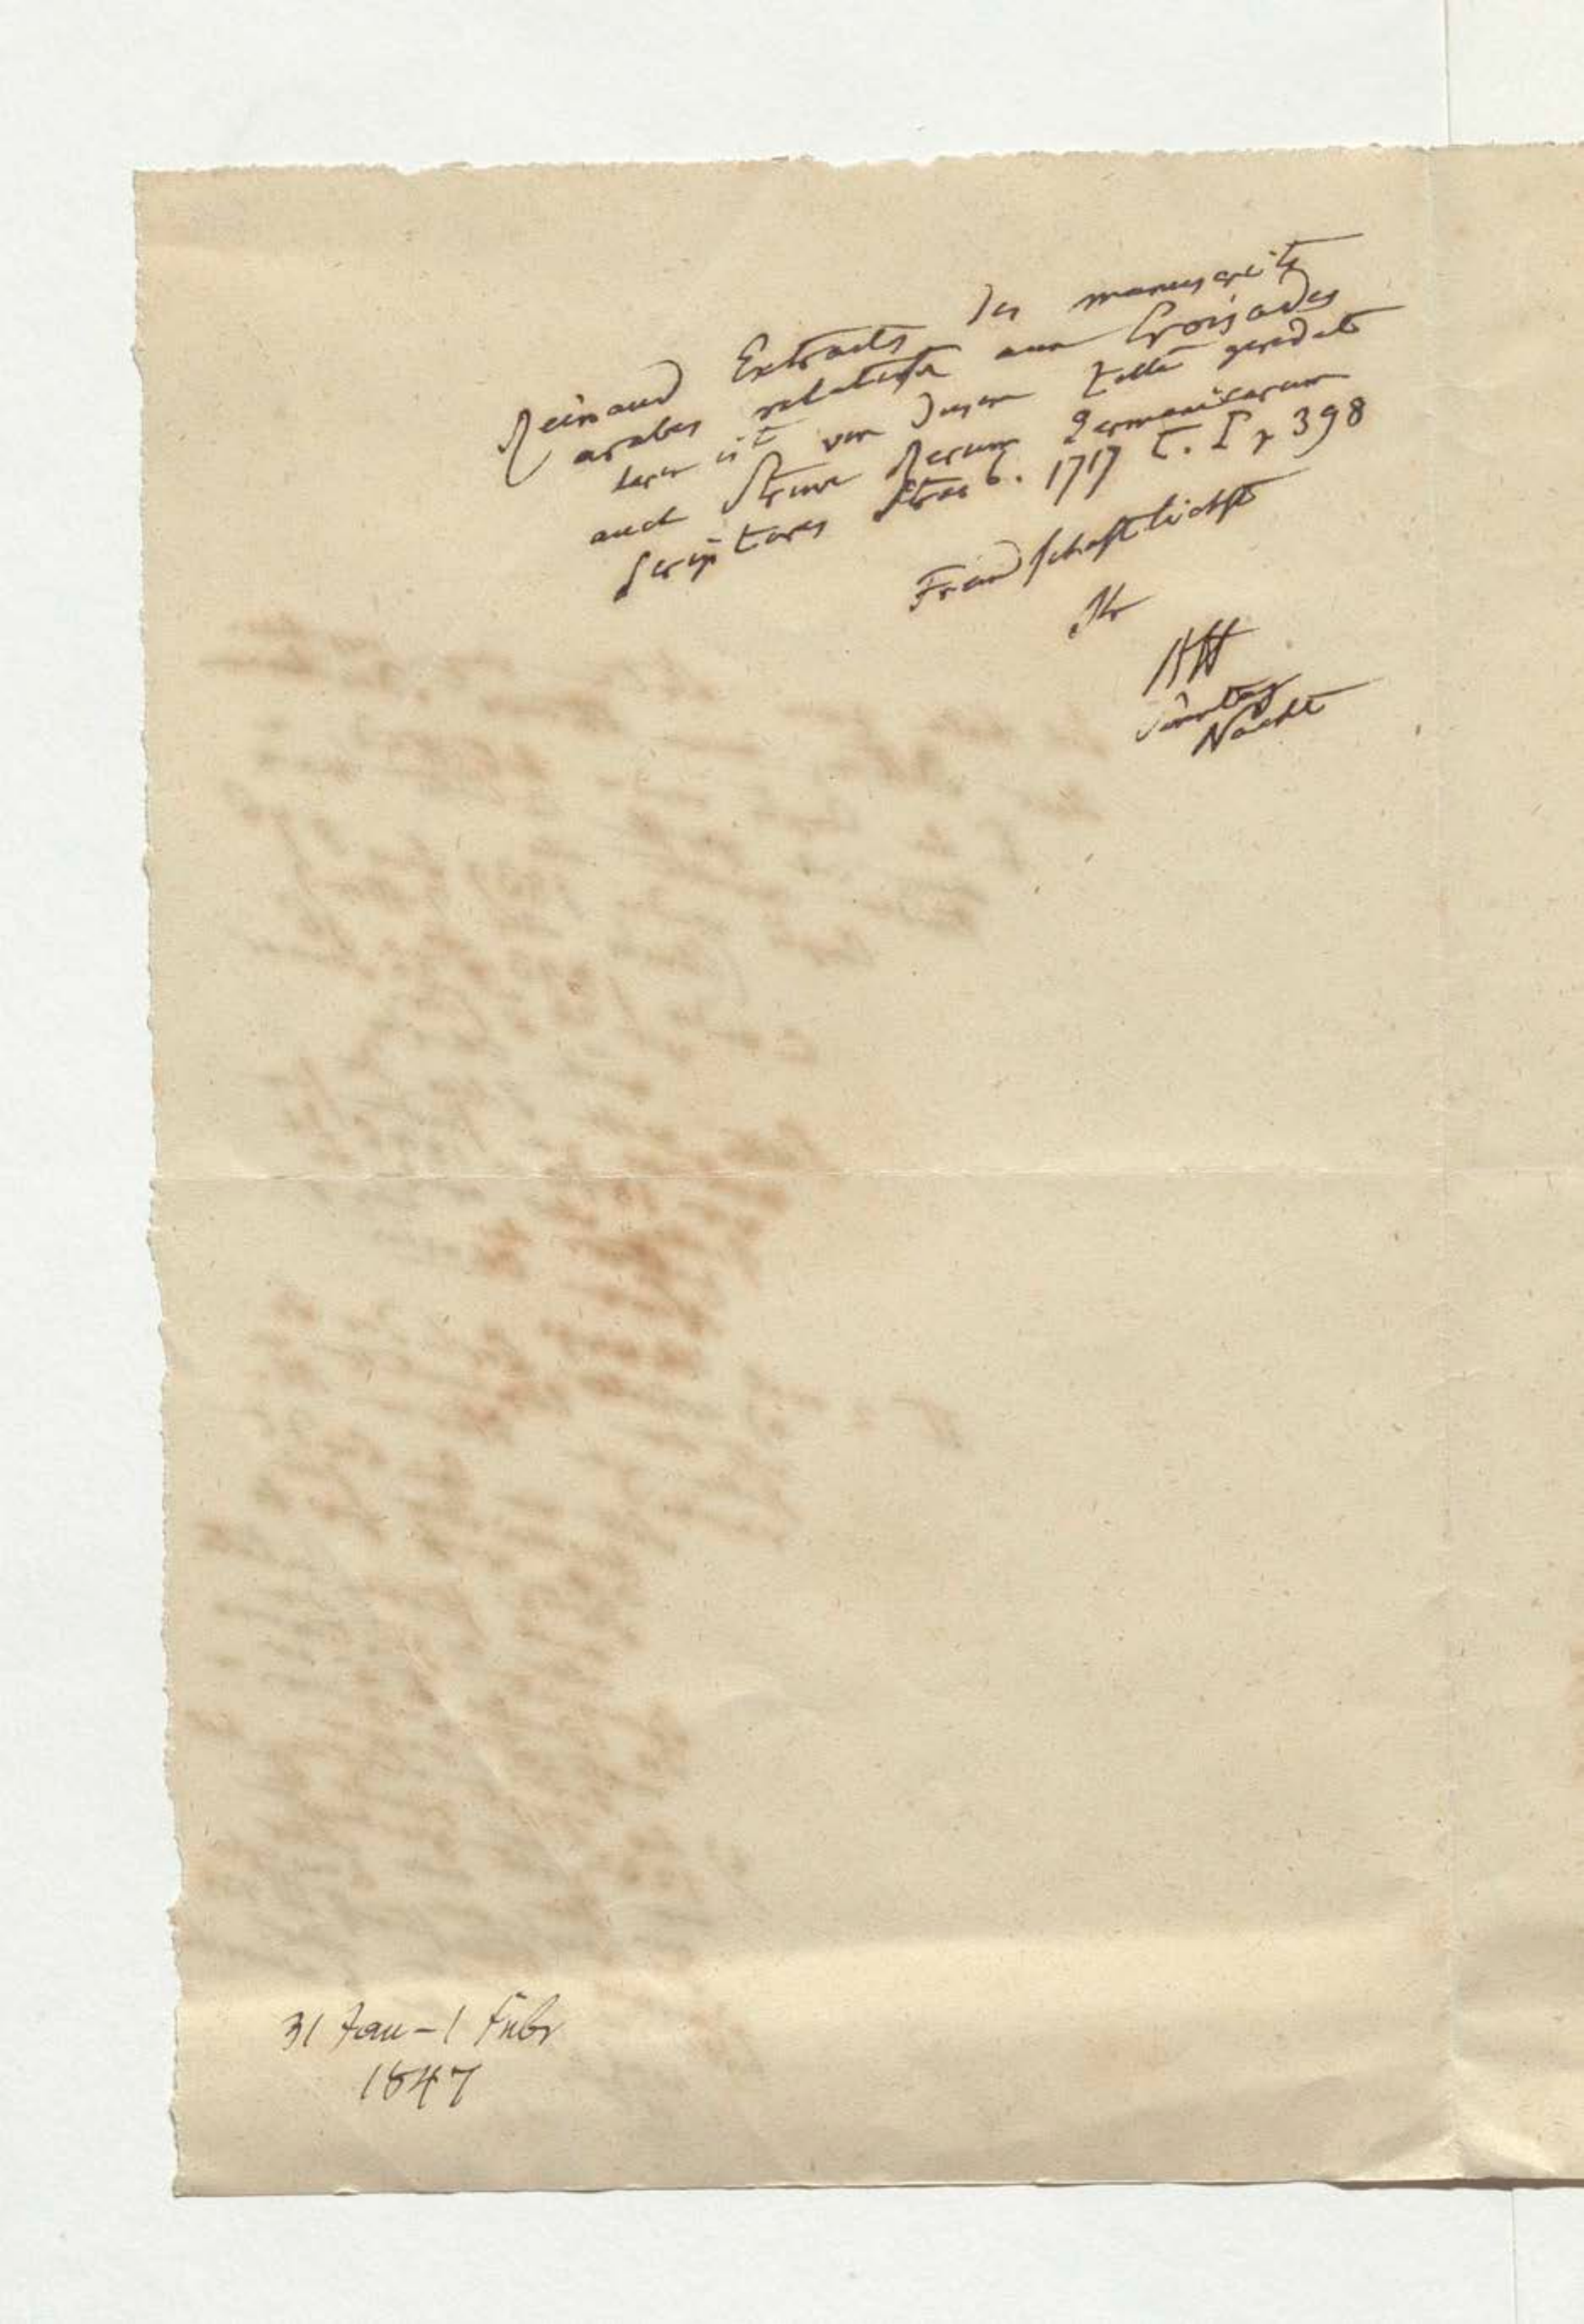 Reinaud Extraits des manuscrits
arabes relatifs aux Croisades
ist von diesem Zelte geredet
auch Struve Rerum Germanicarum
Scriptores Stras b. 1717 T. I p 398
Freundschaftlichst
Ihr
AHt
Sonntag
Nacht
31 Jan – 1 Febr
1847